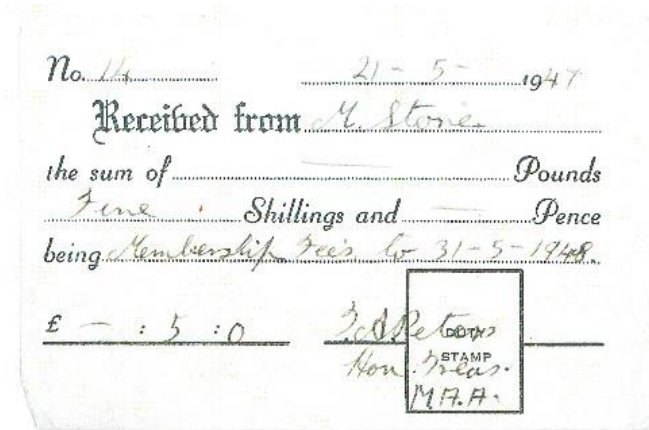 No. 14 21 - 5 - 1947
Received from M. Stone
the sum of — Pounds
Five Shillings and — Pence
being Membership Fees to 31-5-1948.
£ — : 5 : 0
Peters DUTY
Hon. Treas. STAMP
M.A.A.